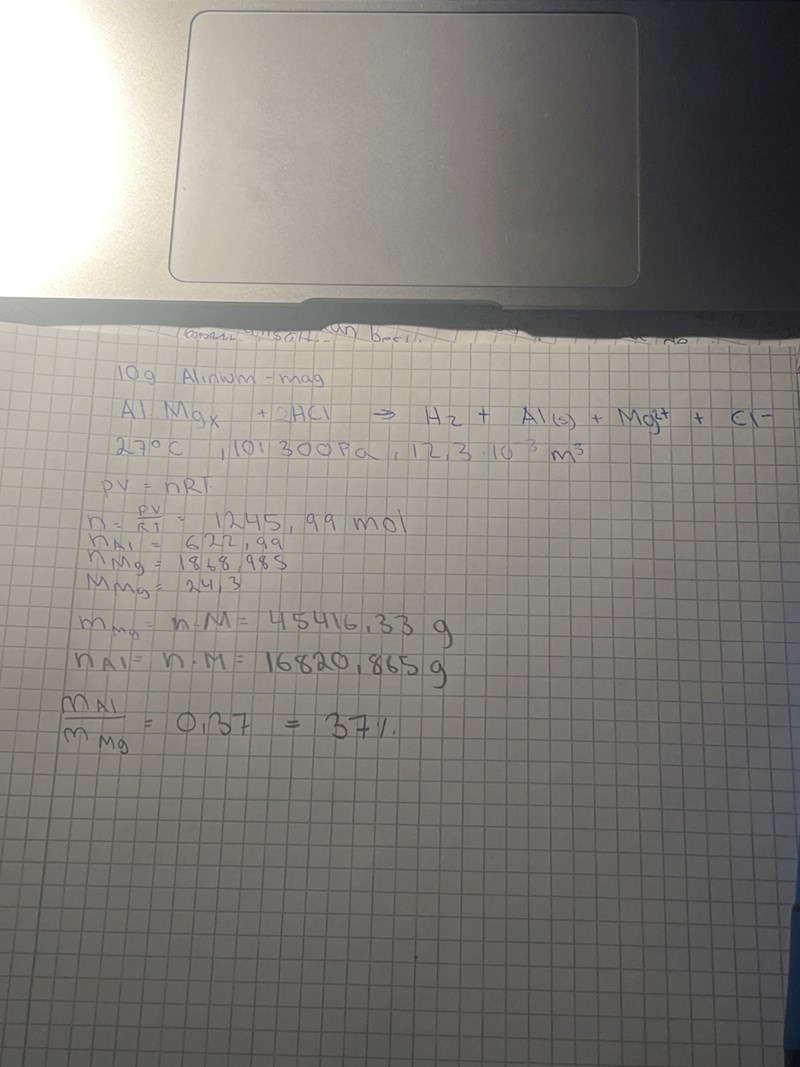 10g Alinium-mag
Al Mgx + 2HCl ⇒ H2 + Al(s) + Mg2+ + Cl-
27°C , 101 300Pa , 12,3·10-3 m3
PV = nRT
n = PV/RT = 1245,99 mol
nAl = 622,99
nMg = 1868,985
MMg = 24,3
mMg = n·M = 45416,33 g
nAl = n·M = 16820,865 g
mAl/mMg = 0,37 = 37%